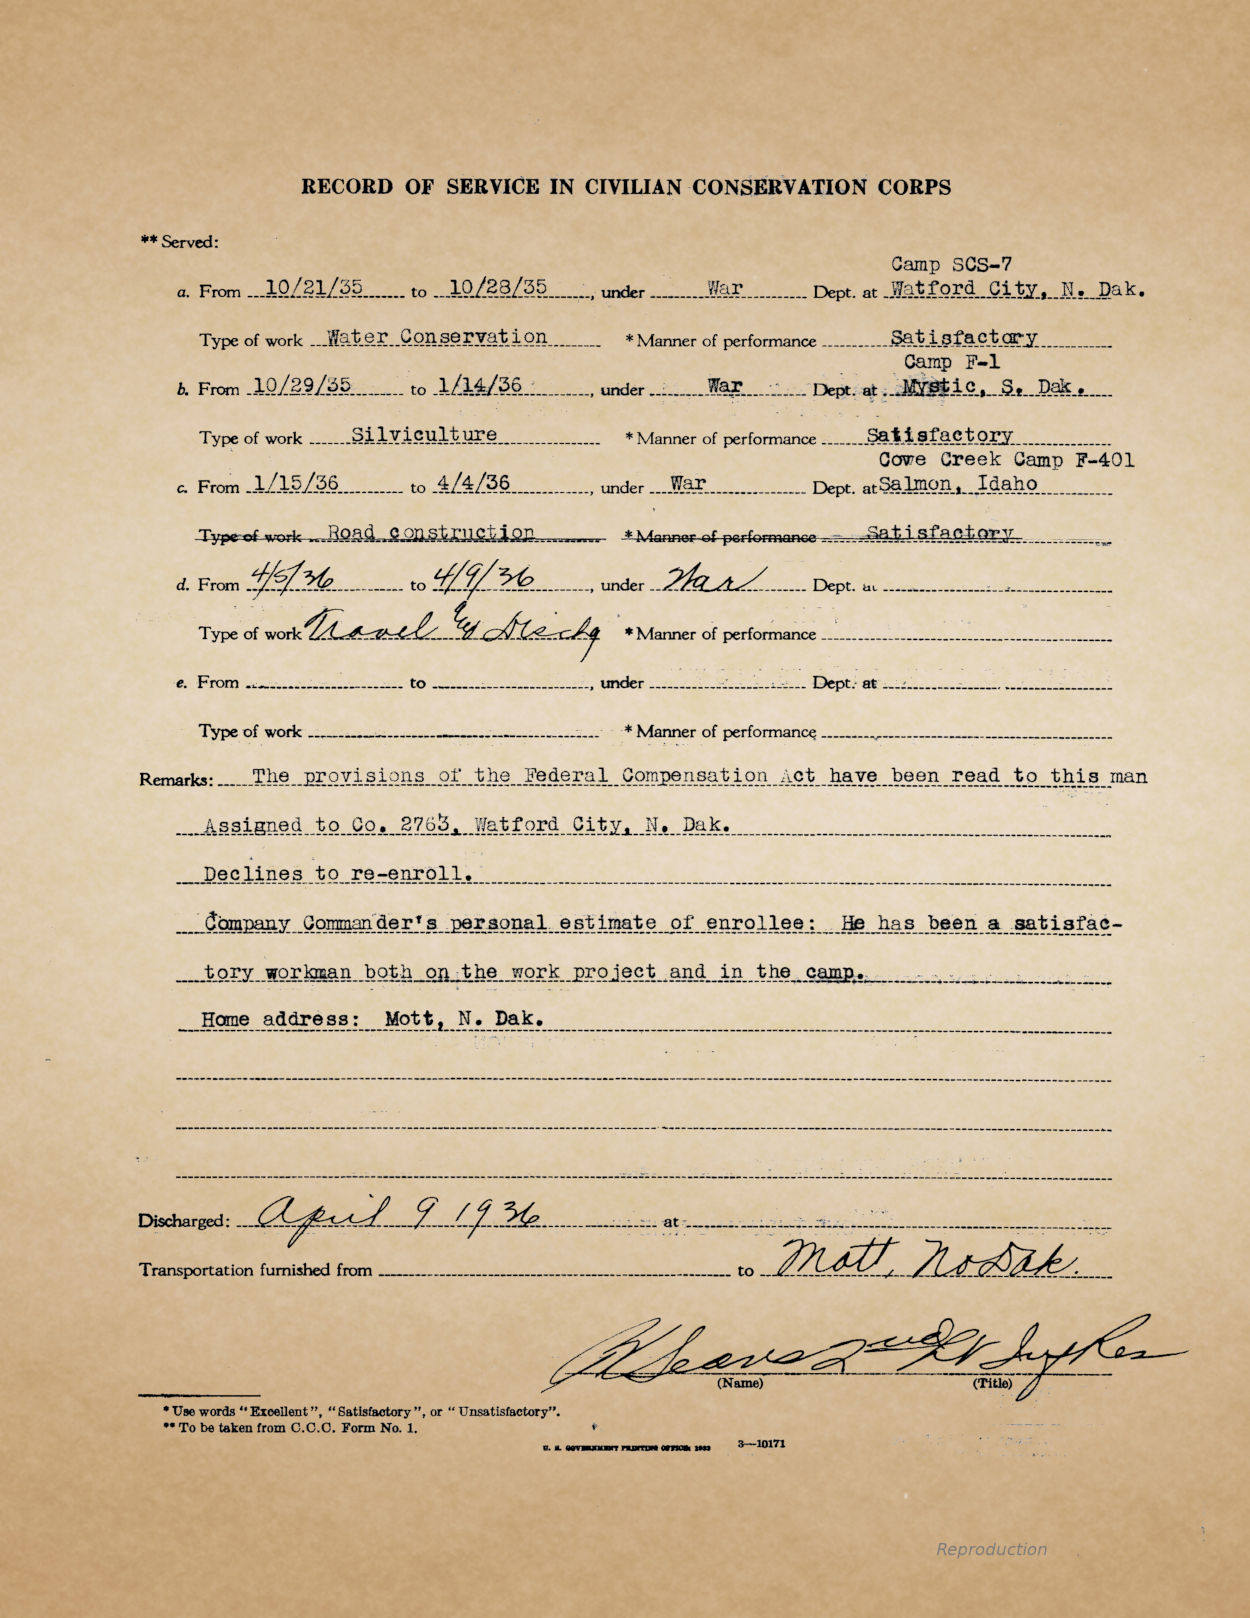 RECORD OF SERVICE IN CIVILIAN CONSERVATION CORPS
** Served:
Camp SCS-7
a. From 10/21/35 to 10/28/35, under War Dept. at Watford City, N. Dak.
Type of work Water Conservation *Manner of performance Satisfactory
Camp F-1
b. From 10/29/35 to 1/14/36, under War Dept. at Mystic, S. Dak.
Type of work Silviculture *Manner of performance Satisfactory
Cove Creek Camp F-401
c. From 1/15/36 to 4/4/36, under War Dept. at Salmon, Idaho
Type of work Road construction *Manner of performance Satisfactory
d. From 4/5/36 to 4/9/36, under War Dept. at
Type of work Travel Dischg *Manner of performance
e. From to , under Dept. at
Type of work *Manner of performance
Remarks: The provisions of the Federal Compensation Act have been read to this man
Assigned to Co. 2763, Watford City, N. Dak.
Declines to re-enroll.
Company Commander's personal estimate of enrollee: He has been a satisfac-
tory workman both on the work project and in the camp.
Home address: Mott, N. Dak.
Discharged: April 9 1936 at
Transportation furnished from to Mott, No Dak.
2nd Lt
(Name) (Title)
* Use words "Excellent", "Satisfactory", or "Unsatisfactory".
** To be taken from C.C.C. Form No. 1.
U. S. GOVERNMENT PRINTING OFFICE: 1933 3—10171
Reproduction